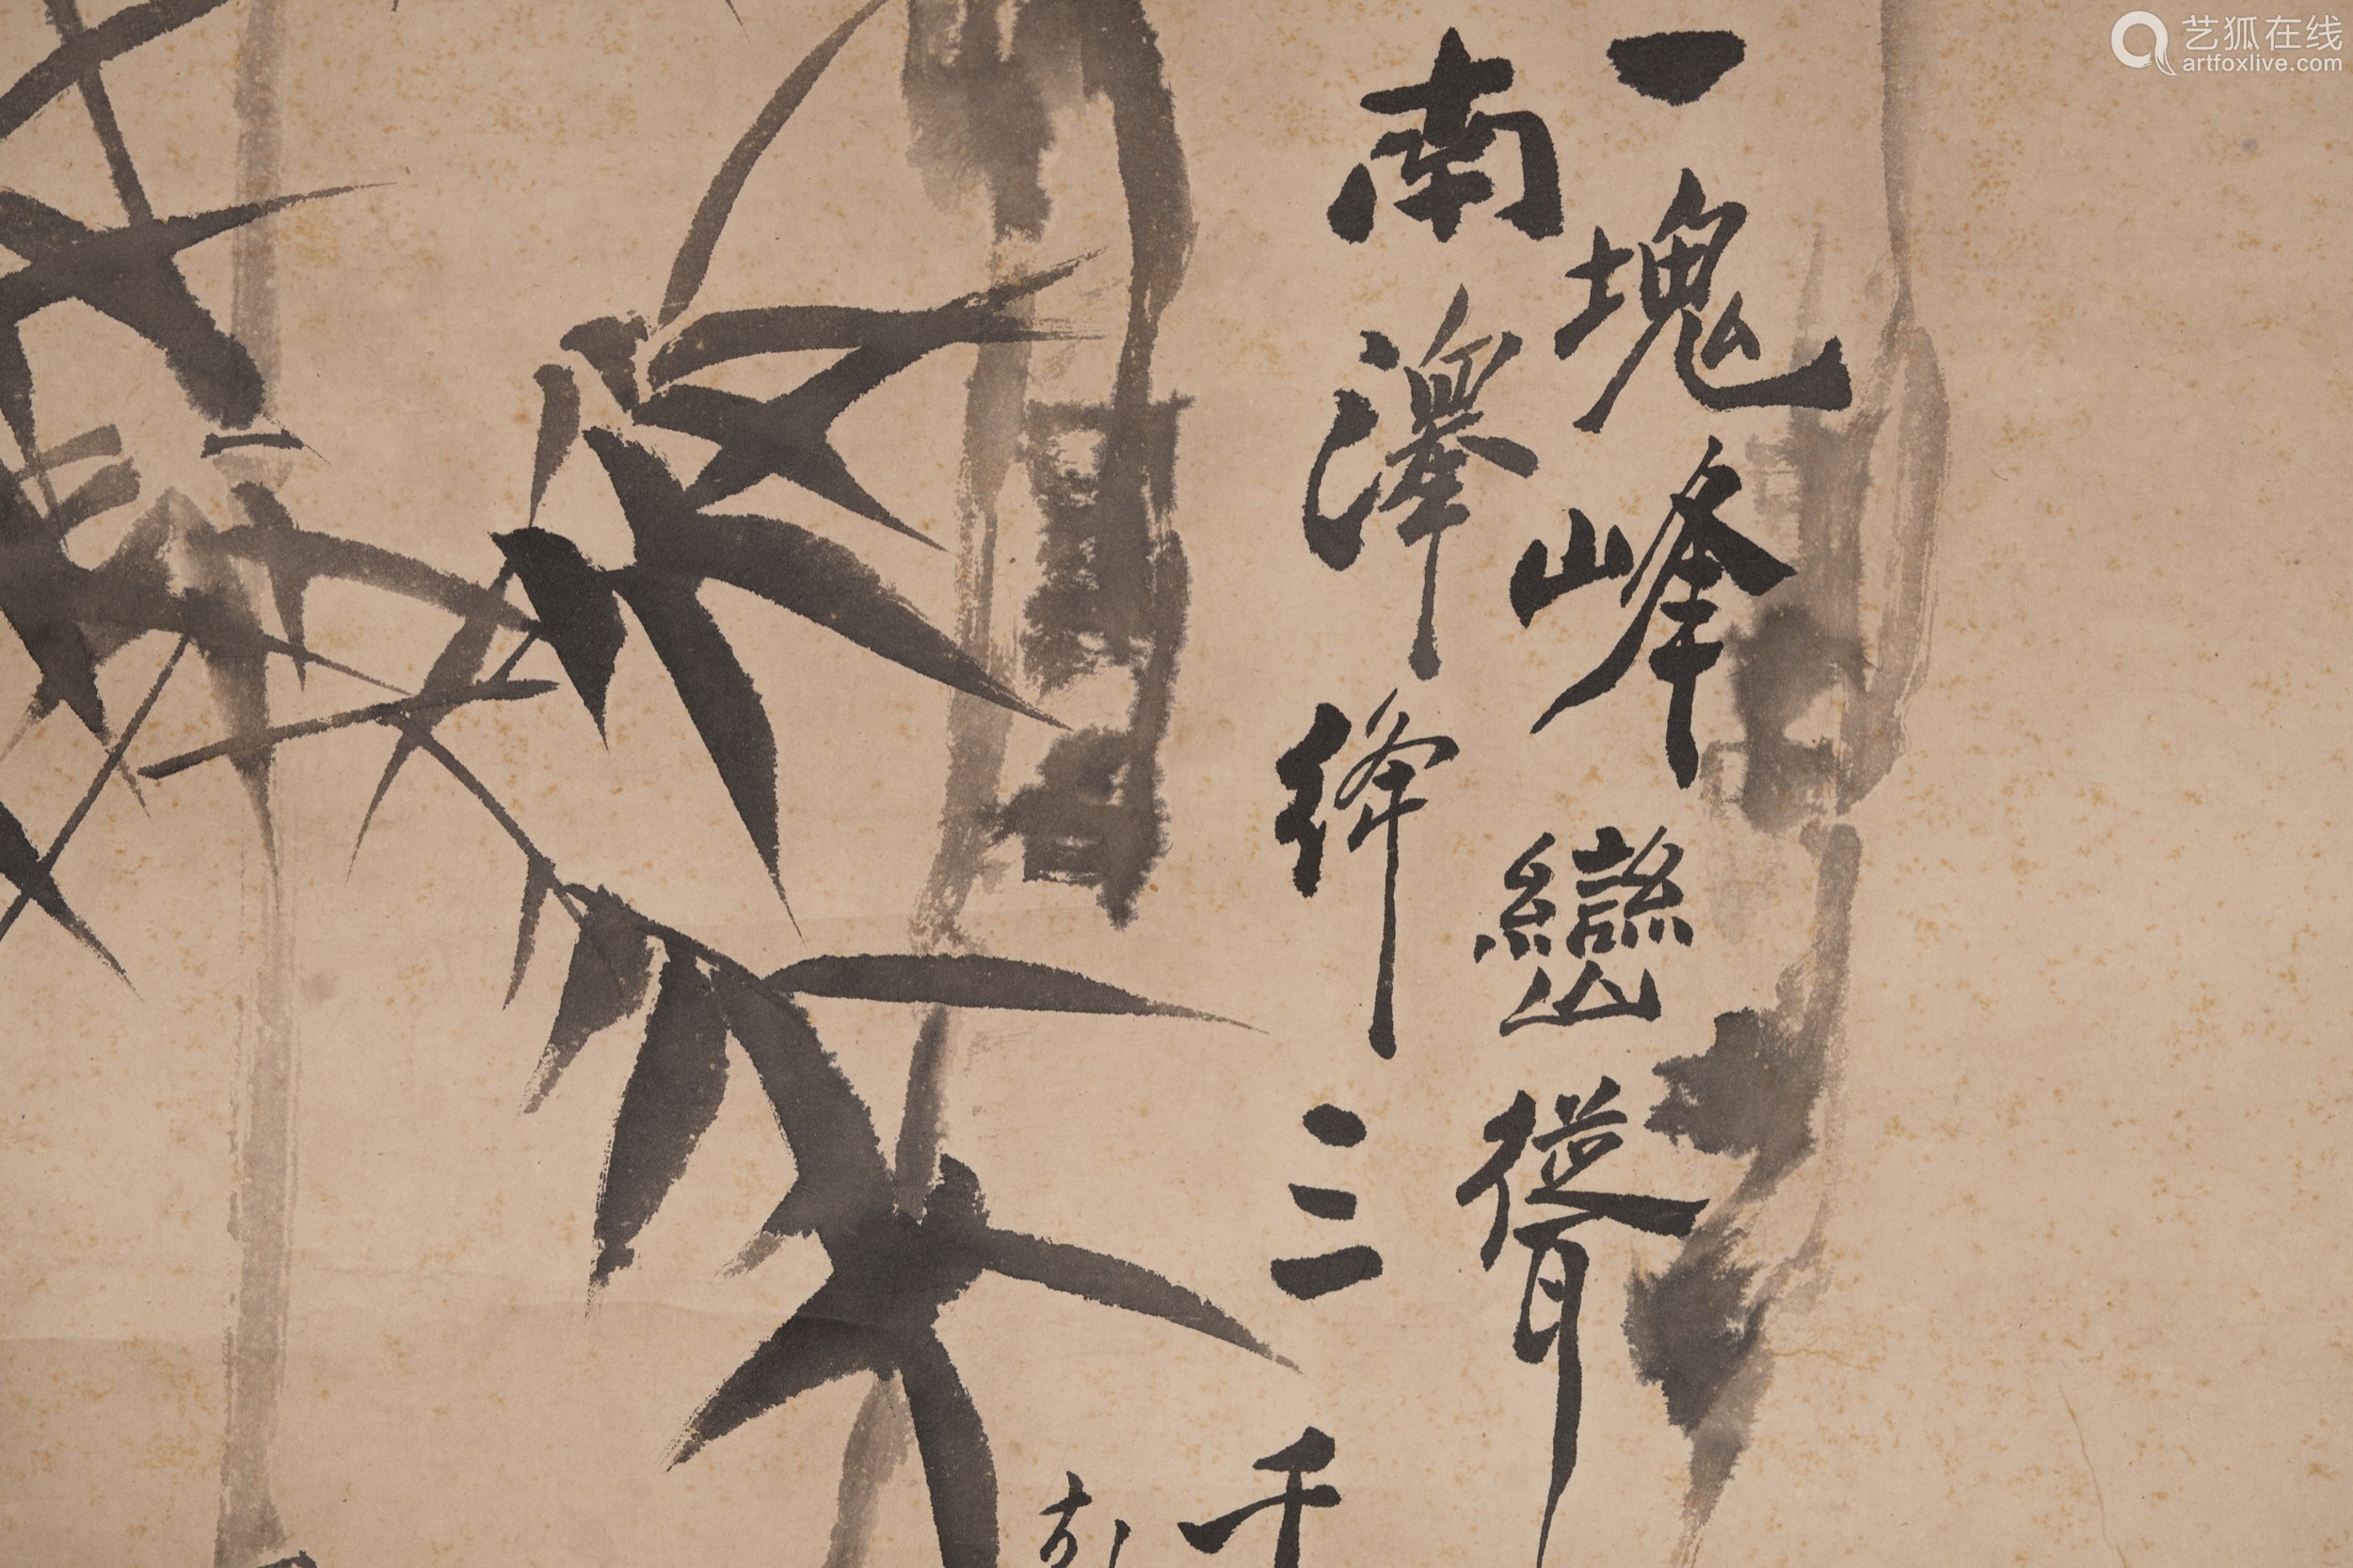 一塊峰巒聳
南澤絳三千
艺狐在线
artfoxlive.com